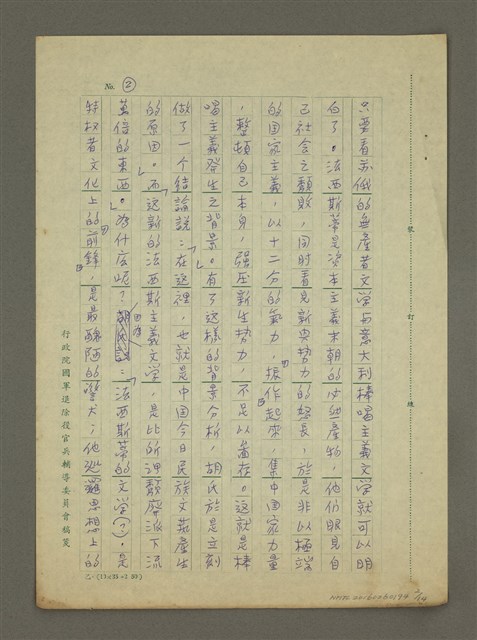 No. ②
只要看苏俄的無產者文学与意大利棒喝主義文学就可以明
白了。法西斯蒂是資本主義末朝的必然產物，他们眼見自
己社会之頹敗，同时看見新興勢力的怒長，於是非以極端
的国家主義，以十二分的氣力，振作起來，集中国家力量
，整頓自己本身，强压新生势力，不足以畜存。這就是棒
喝主義發生之背景。」有了这樣的背景分析，胡氏於是立刻
做了一个結論説：「在這裡，也就是中国今日民族文藝產生
的原因。」「而这新的法西斯主義文学，是比所谓頹廃派下流
萬倍的東西。」為什広呢？胡氏説：「法西斯蒂的文学（？）是
特权者文化上的前鋒，是最醜陋的警犬；他巡邏思想上的
行政院國軍退除役官兵輔導委員會稿箋
裝 訂 線